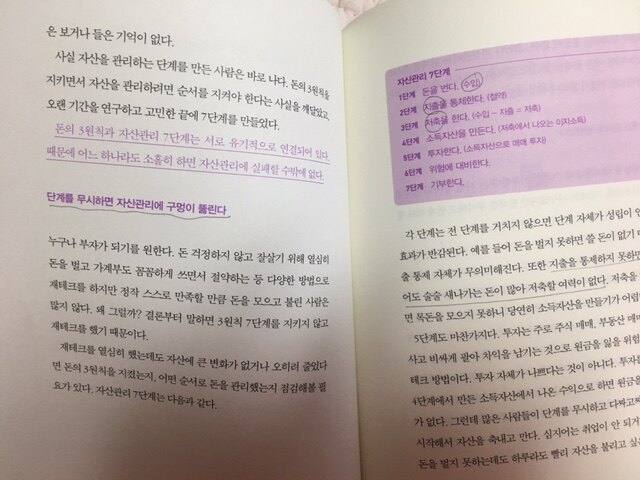 은 보거나 들은 기억이 없다.
사실 자산을 관리하는 단계를 만든 사람은 바로 나다. 돈의 3원칙을
지키면서 자산을 관리하려면 순서를 지켜야 한다는 사실을 깨달았고,
오랜 기간을 연구하고 고민한 끝에 7단계를 만들었다.
돈의 3원칙과 자산관리 7단계는 서로 유기적으로 연결되어 있다.
때문에 어느 하나라도 소홀히 하면 자산관리에 실패할 수밖에 없다.
단계를 무시하면 자산관리에 구멍이 뚫린다
누구나 부자가 되기를 원한다. 돈 걱정하지 않고 잘살기 위해 열심히
돈을 벌고 가계부도 꼼꼼하게 쓰면서 절약하는 등 다양한 방법으로
재테크를 하지만 정작 스스로 만족할 만큼 돈을 모으고 불린 사람은
많지 않다. 왜 그럴까? 결론부터 말하면 3원칙 7단계를 지키지 않고
재테크를 했기 때문이다.
재테크를 열심히 했는데도 자산에 큰 변화가 없거나 오히려 줄었다
면 돈의 3원칙을 지켰는지, 어떤 순서로 돈을 관리했는지 점검해볼 필
요가 있다. 자산관리 7단계는 다음과 같다.
자산관리 7단계
1단계 돈을 번다. (수입)
2단계 지출을 통제한다. (절약)
3단계 저축을 한다. (수입 – 지출 = 저축)
4단계 소득자산을 만든다. (저축에서 나오는 이자소득)
5단계 투자한다. (소득자산으로 매매 투자)
6단계 위험에 대비한다.
7단계 기부한다.
각 단계는 전 단계를 거치지 않으면 단계 자체가 성립이 안
효과가 반감된다. 예를 들어 돈을 벌지 못하면 쓸 돈이 없기 때
출 통제 자체가 무의미해진다. 또한 지출을 통제하지 못하면
어도 술술 새나가는 돈이 많아 저축할 여력이 없다. 저축을
면 목돈을 모으지 못하니 당연히 소득자산을 만들기가 어렵
5단계도 마찬가지다. 투자는 주로 주식 매매, 부동산 매매
사고 비싸게 팔아 차익을 남기는 것으로 원금을 잃을 위험
테크 방법이다. 투자 자체가 나쁘다는 것이 아니다. 투자를
4단계에서 만든 소득자산에서 나온 수익으로 하면 원금을
가 없다. 그런데 많은 사람들이 단계를 무시하고 다짜고짜
시작해서 자산을 축내고 만다. 심지어는 취업이 안 되거
돈을 벌지 못하는데도 하루라도 빨리 자산을 불리고 싶은